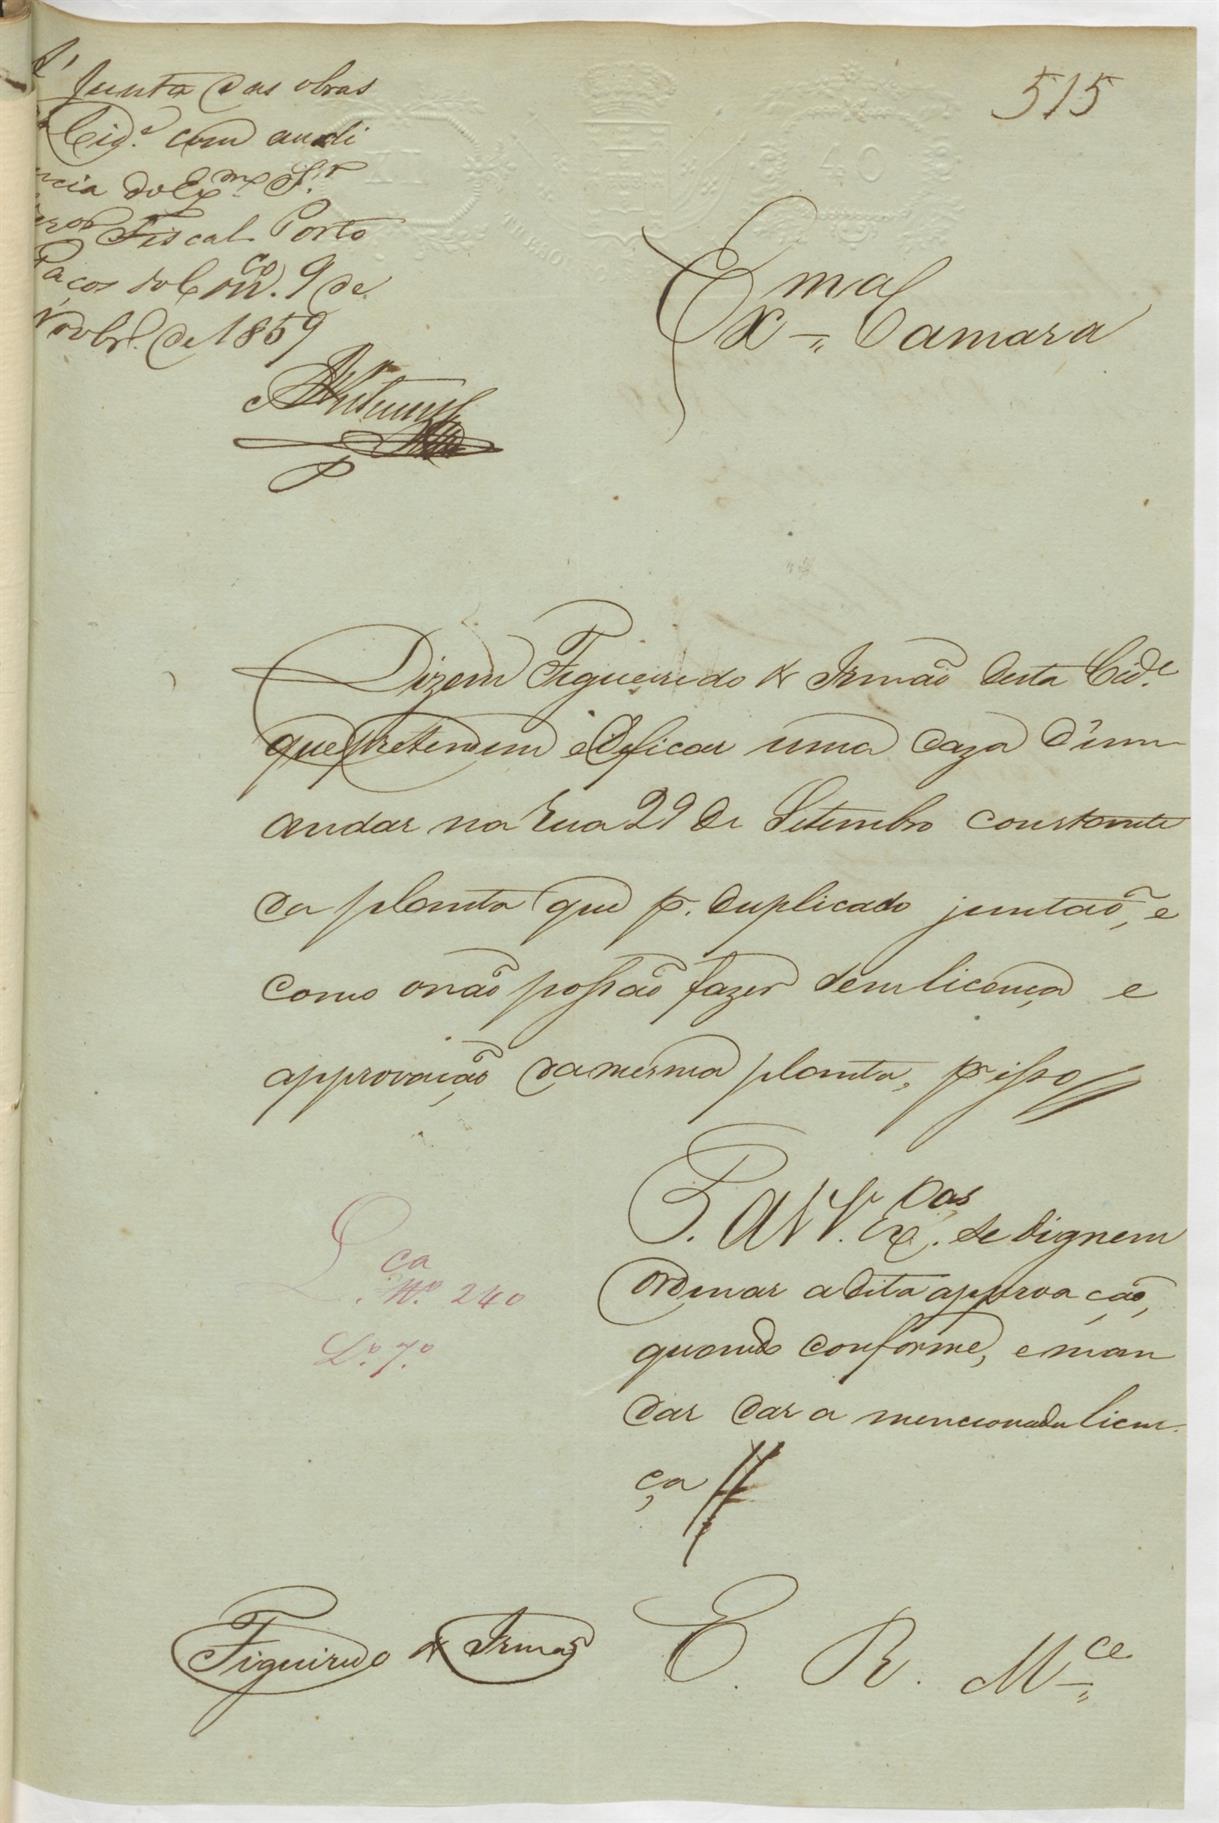 Á Junta das obras
Cid.e com audi
ncia do Ex.mo S.r
Fiscal. Porto
Paços do Con.co 9 de
Novbr.o de 1859
515
40
Ex.ma Camara
Dizem Figueiredo & Irmão desta Cid.e
que pretendem edeficar uma caza d'um
andar na rua 29 de Setembro constante
da planta que p.r duplicado juntão, e
como o não possão fazer sem licença e
approvação da mesma planta, p.r isso
P. a VV. Ex.as se dignem
ordenar a dita approvação,
quando conforme, e man
dar dar a mencionada licen
ça
L.ca N.o 240
L.o 7.o
Figueiredo & Irmão
E. R. M.ce